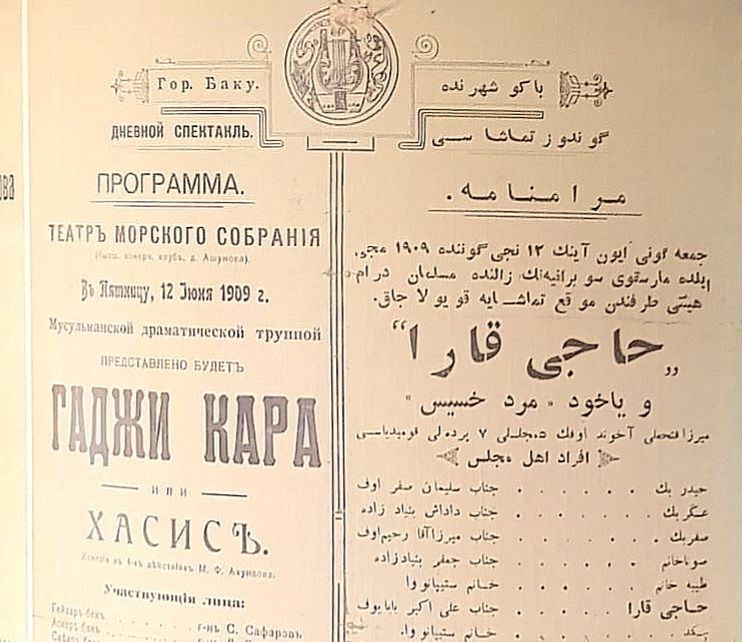 Гор. Баку.
ДНЕВНОЙ СПЕКТАКЛЬ.
ПРОГРАММА.
ТЕАТРЪ МОРСКОГО СОБРАНІЯ
Въ Пятницу, 12 Іюня 1909 г.
Мусульманской драматической труппой
ПРЕДСТАВЛЕНО БУДЕТЪ
ГАДЖИ КАРА
ИЛИ
ХАСИСЪ.
М. Ф. Ахундова.
Участвующія лица:
Гейдаръ-бекъ г-нъ С. Сафаровъ
Аскеръ-бекъ
باكو شهرنده
گوندوز تماشا سی
مرامنامه.
جمعه گونی ایون آینك ١٢ نجی گوننده ١٩٠٩ مجی
ایلده مارسقوی سوبرانیه‌نك زالنده مسلمان درام
هیئتی طرفندن موقع تماشایه قویولاجاق.
„حاجی قارا“
و یاخود «مرد خسیس»
میرزا فتحعلی آخوندوفك مجلسلی ٧ پرده‌لی قومیدیاسی
افراد اهل مجلس
حیدر بك . . . . . . جناب سلیمان صفراوف
عسگر بك . . . . . . جناب داداش بنیادزاده
صفر بك . . . . . . جناب میرزا آقا رحیم‌اوف
سوناخانم . . . . . . جناب جعفر بنیادزاده
طیبه خانم . . . . . . خانم ستیپانووا
حاجی قارا . . . . . . جناب علی اکبر بابایوف
خانم ستیپانووا.